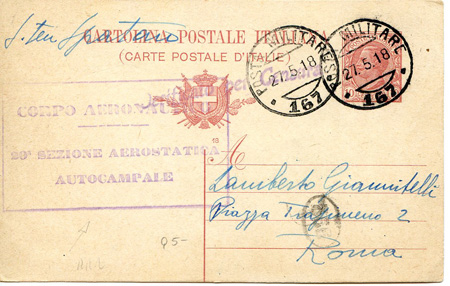 S. Ten
CARTOLINA POSTALE ITALIANA
(CARTE POSTALE D'ITALIE)
POSTA MILITARE
27.5.18
167
POSTA MILITARE
27.5.18
167
CORPO AERONAU
20ª SEZIONE AEROSTATICA
AUTOCAMPALE
18
A
Lamberto Giannitelli
Piazza 2
Roma
95-